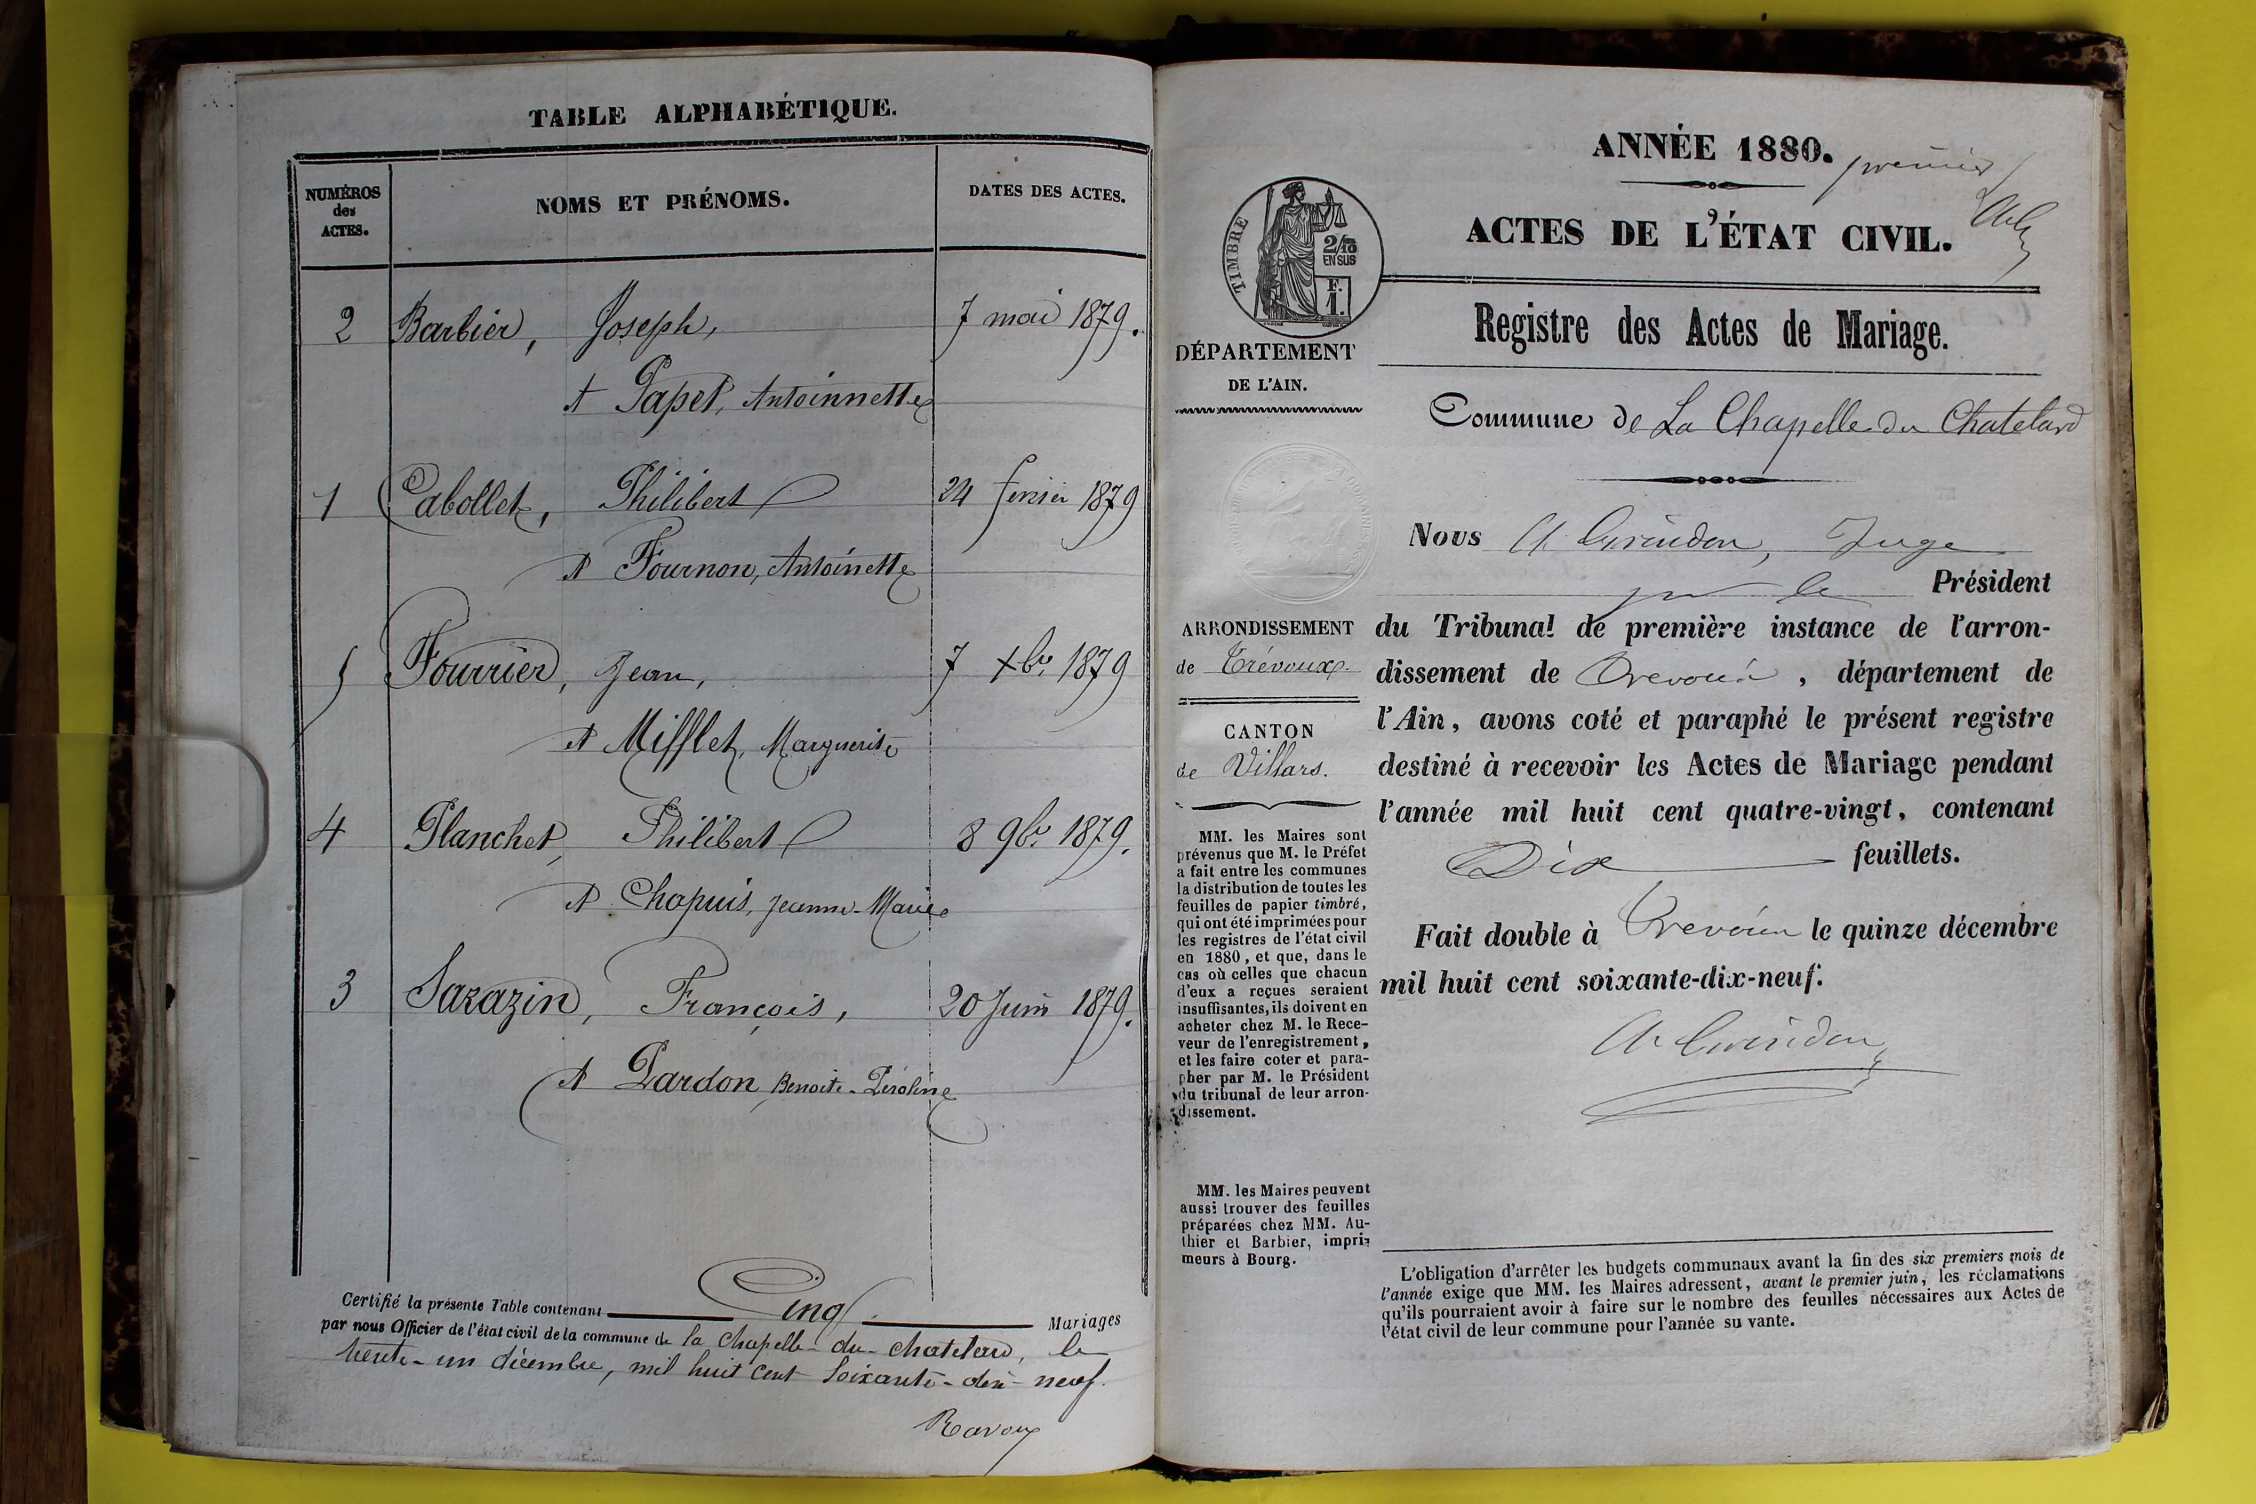 TABLE ALPHABÉTIQUE.
NUMÉROS
des
ACTES.
NOMS ET PRÉNOMS.
DATES DES ACTES.
2 Barbier, Joseph, 7 mai 1879.
et Papet, Antoinette
1 Cabollet, Philibert 24 fevrier 1879
et Fournon, Antoinette
5 Fourrier, Jean, 7 Xbre 1879
et Mifflet, Marguerite
4 Planchet, Philibert 8 9bre 1879.
et Chapuis, Jeanne-Marie
3 Sarazin, François, 20 Juin 1879.
et Pardon, Benoite-
Certifié la présente Table contenant Cinq Mariages
par nous Officier de l'état civil de la commune de La Chapelle-du-Chatelard, le
trente-un décembre, mil huit cent soixante-dix-neuf.
Ravoux
ANNÉE 1880.
premier
ACTES DE L'ÉTAT CIVIL.
TIMBRE
2/10
EN SUS
F.
1.
Registre des Actes de Mariage.
DÉPARTEMENT
DE L'AIN.
Commune de La Chapelle du Chatelard
Nous Juge
Président
ARRONDISSEMENT
de Trévoux.
CANTON
de Villars.
du Tribunal de première instance de l'arron-
dissement de Trevoux, département de
l'Ain, avons coté et paraphé le présent registre
destiné à recevoir les Actes de Mariage pendant
l'année mil huit cent quatre-vingt, contenant
Dix feuillets.
Fait double à Trevoux le quinze décembre
mil huit cent soixante-dix-neuf.
MM. les Maires sont
prévenus que M. le Préfet
a fait entre les communes
la distribution de toutes les
feuilles de papier timbré,
qui ont été imprimées pour
les registres de l'état civil
en 1880, et que, dans le
cas où celles que chacun
d'eux a reçues seraient
insuffisantes, ils doivent en
acheter chez M. le Rece-
veur de l'enregistrement,
et les faire coter et para-
pher par M. le Président
du tribunal de leur arron-
dissement.
MM. les Maires peuvent
aussi trouver des feuilles
préparées chez MM. Au-
thier et Barbier, impri-
meurs à Bourg.
L'obligation d'arrêter les budgets communaux avant la fin des six premiers mois de
l'année exige que MM. les Maires adressent, avant le premier juin, les réclamations
qu'ils pourraient avoir à faire sur le nombre des feuilles nécessaires aux Actes de
l'état civil de leur commune pour l'année su vante.